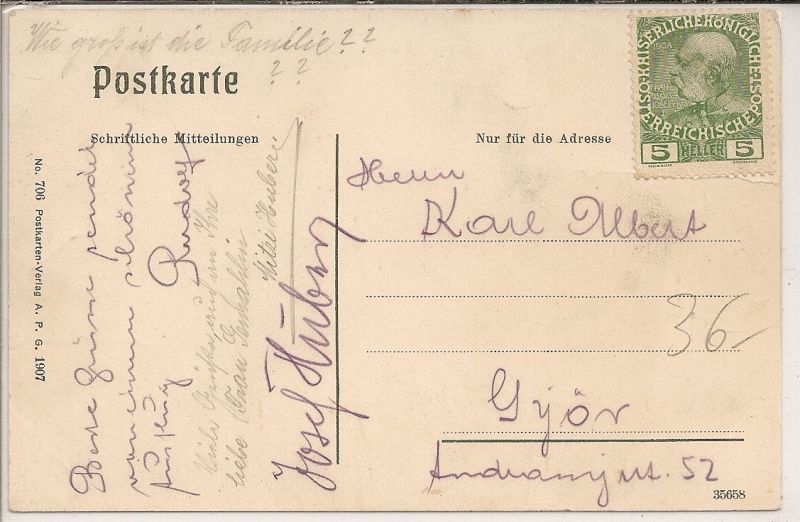 Wie groß ist die Familie??
??
Postkarte
Schriftliche Mitteilungen
Nur für die Adresse
ÖSTERREICHISCHE POST
KAISERLICHE KÖNIGLICHE
1908
5 HELLER 5
Beste Grüße sendet
von einem schönen
Ausflug Rudolf
Viele Grüße auch an Ihre
liebe Frau Gemahlin
Mitzi Huber
Josef Huber
Herrn
Karl Albert
36-
Győr
Andrassy ut. 52
No. 706 Postkarten-Verlag A. P. G. 1907
35658